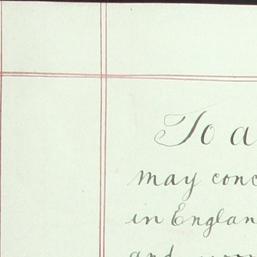 To a
may conc
in Englan
and